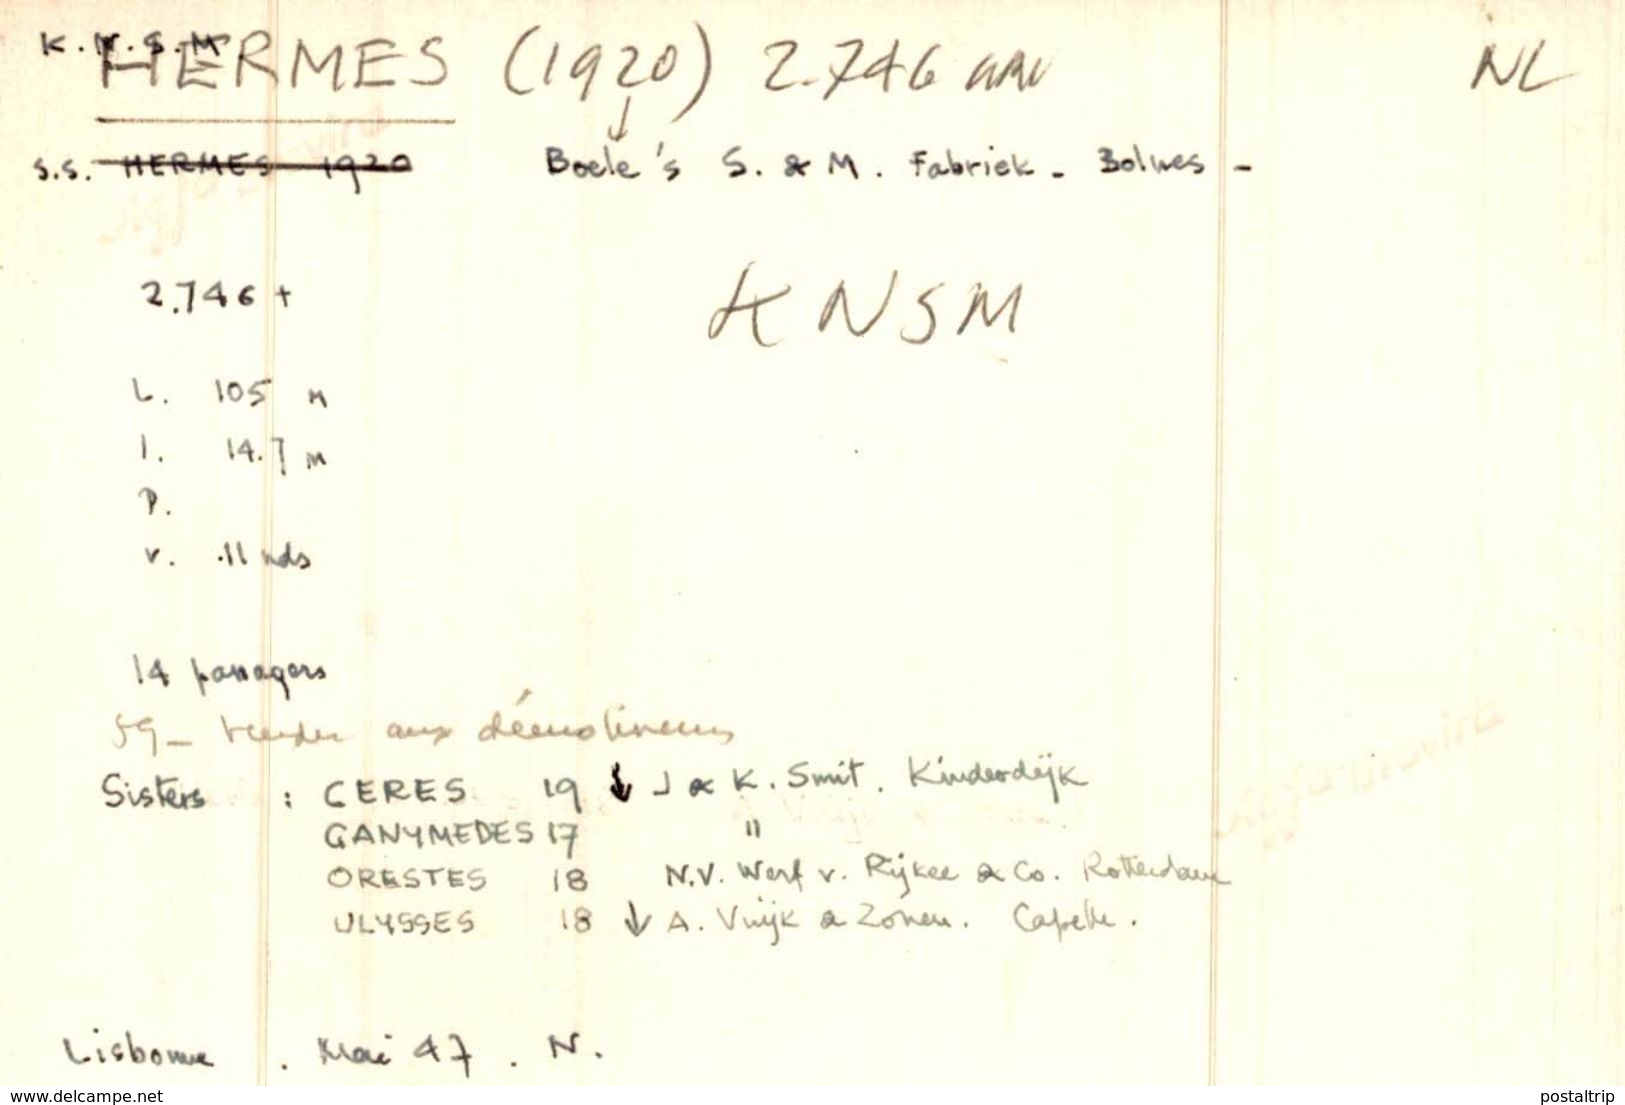 K.N.S.M
HERMES (1920) 2.746 NL
s.s. HERMES 1920 Boele's S. & M. Fabriek - Bolnes -
2.746 t
KNSM
L. 105 m
l. 14.7 m
P.
v. 11 nds
14 passagers
59 - aux démolisseurs
Sisters : CERES 19 ↓ J & K. Smit. Kinderdijk
GANYMEDES 17 "
ORESTES 18 N.V. Werf v. Rijkee & Co. Rotterdam
ULYSSES 18 ↓ A. Vuijk & Zonen. Capelle.
Lisbonne . Mai 47 . N.
www.delcampe.net
postaltrip